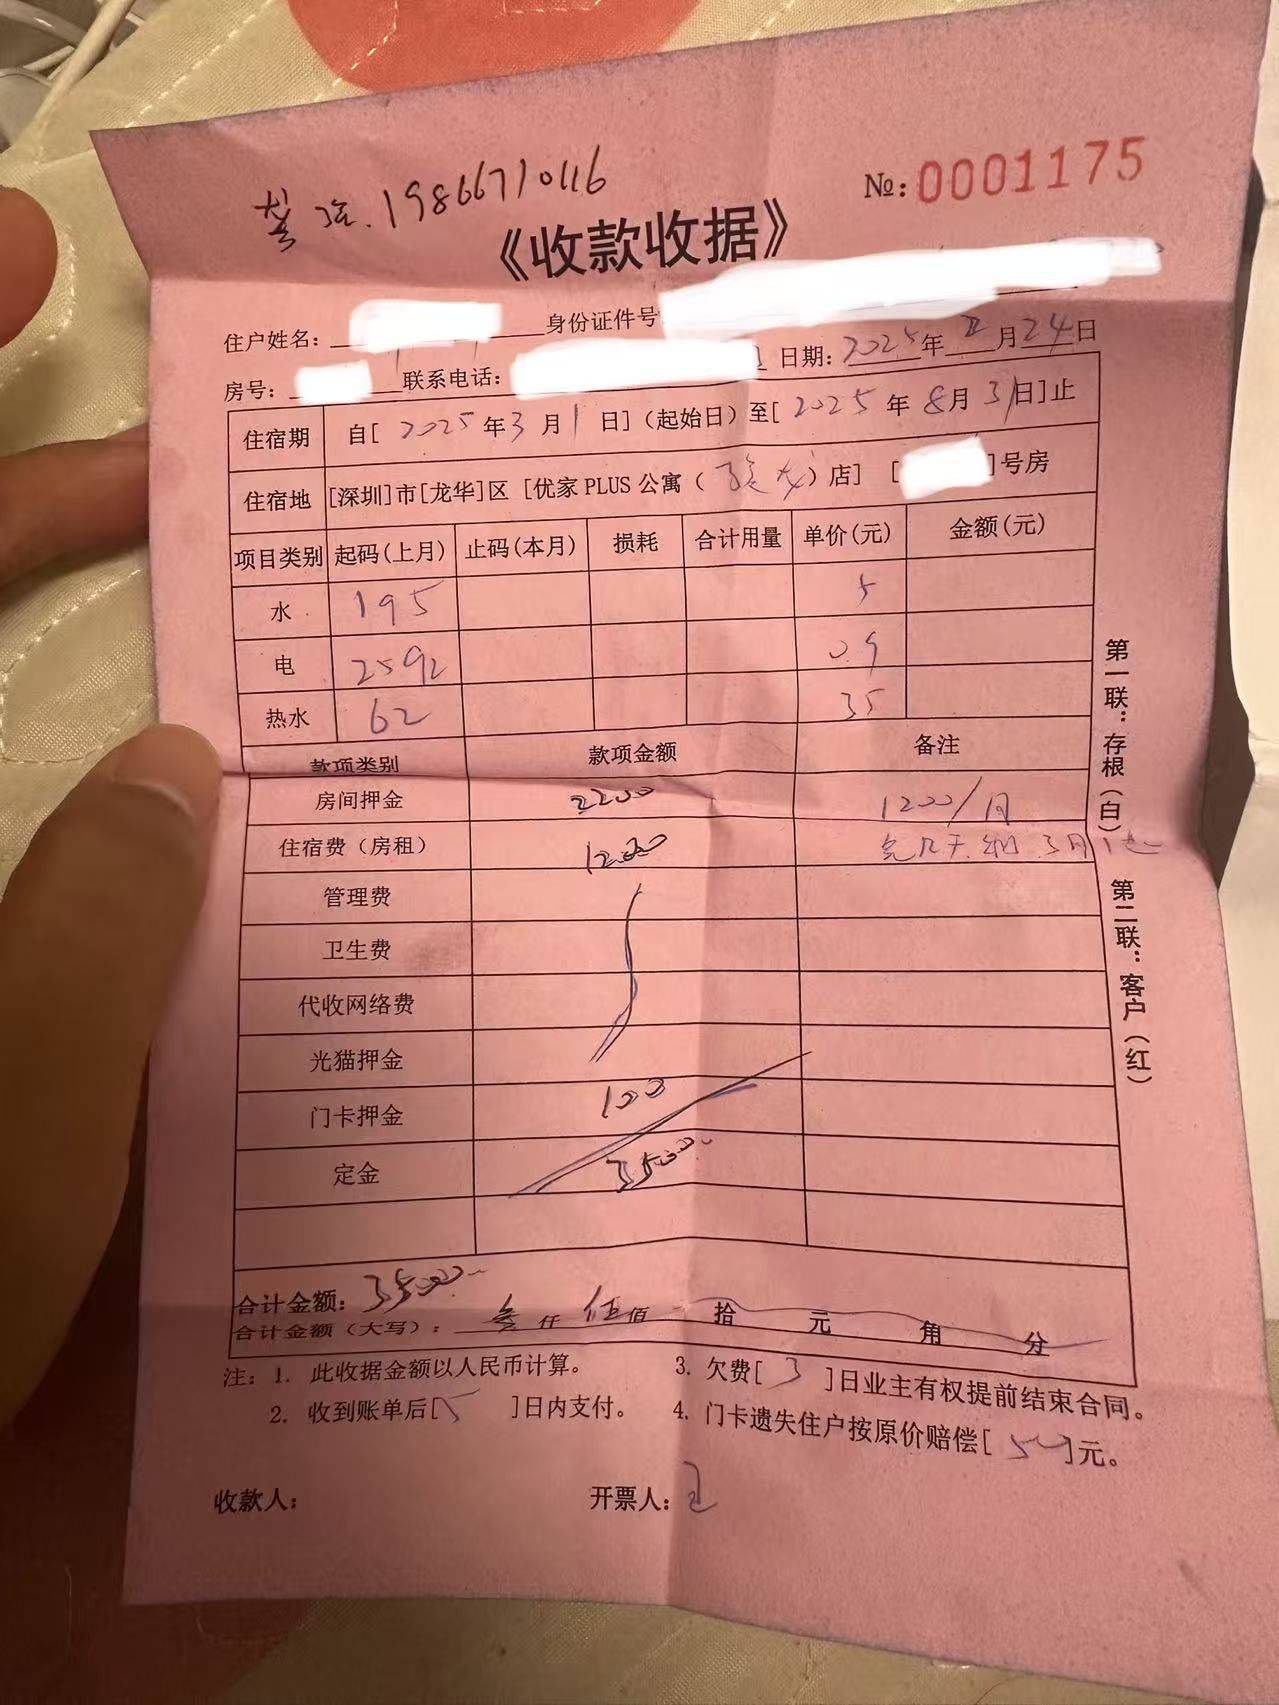 19866710116
№:0001175
《收款收据》
住户姓名: 身份证件号
房号: 联系电话: 日期: 2025年 2 月24日
住宿期 自[ 2025 年 3 月 1 日](起始日)至[ 2025 年 8月 31日]止
住宿地 [深圳]市[龙华]区 [优家 PLUS 公寓( )店] [ ]号房
项目类别 起码(上月) 止码(本月) 损耗 合计用量 单价(元) 金额(元)
水 195 5
电 2592 0.9
热水 62 35
款项类别 款项金额 备注
房间押金 2200 1200/月
住宿费(房租) 1200 免几天 3月1
管理费
卫生费
代收网络费
光猫押金
门卡押金 100
定金 3500
合计金额: 3500
合计金额(大写): 叁 仟 伍 佰 拾 元 角 分
注: 1. 此收据金额以人民币计算。 3. 欠费[ 3 ]日业主有权提前结束合同。
2. 收到账单后[ 5 ]日内支付。 4. 门卡遗失住户按原价赔偿[ 50 ]元。
收款人: 开票人: 王
第一联:存根(白) 第二联:客户(红)